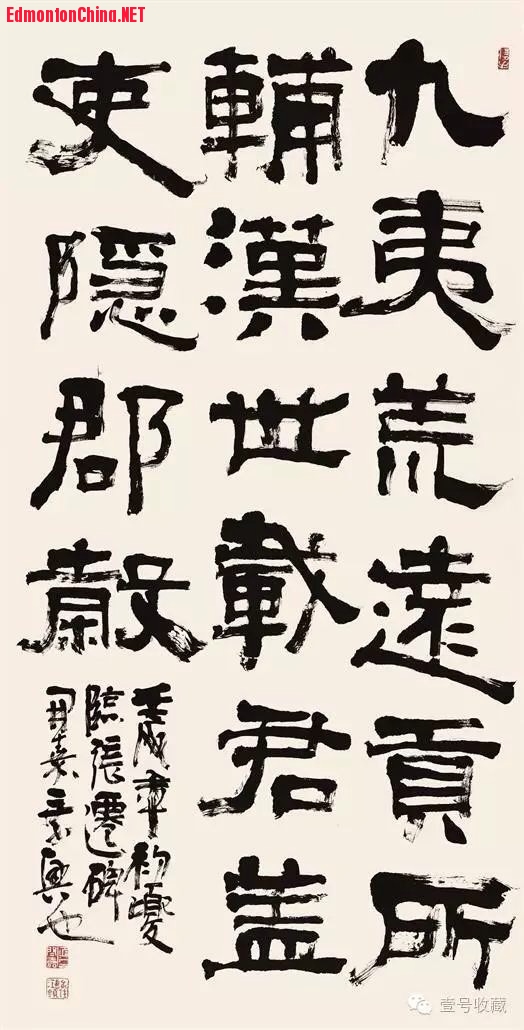 EdmontonChina.NET
九夷荒遠貢所
輔漢世載君蓋
吏隱郡穀
壬戌年初夏
臨張遷碑
興也
壹号收藏